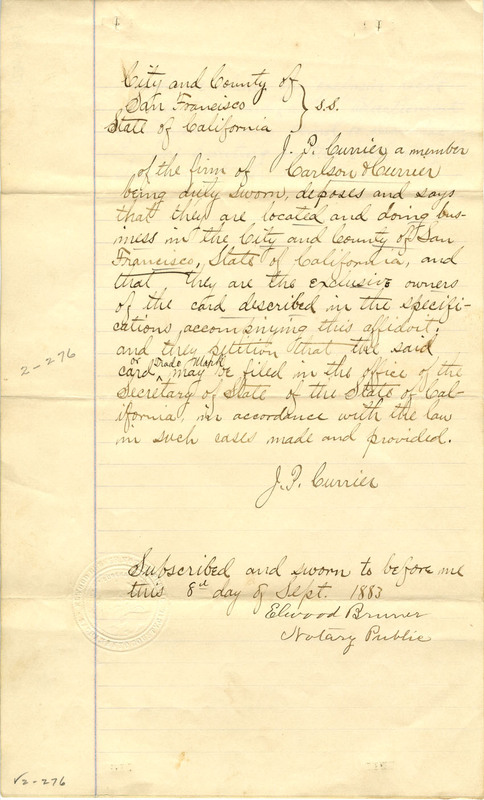 City and County of
San Francisco } s.s.
State of California
J. P. Currier a member
of the firm of Carlson & Currier
being duly sworn, deposes and says
that they are located and doing bus-
iness in the City and County of San
Francisco, State of California, and
that they are the exclusive owners
of the card described in the specifi-
cations accompnying this affidvit;
and they petition that the said
card or Trade Mark may be filed in the office of the
Secretary of State of the State of Cal-
ifornia, in accordance with the law
in such cases made and provided.
J. P. Currier
Subscribed and sworn to before me
this 8th day of Sept. 1883
Elwood Bruner
Notary Public
2-276
V2-276